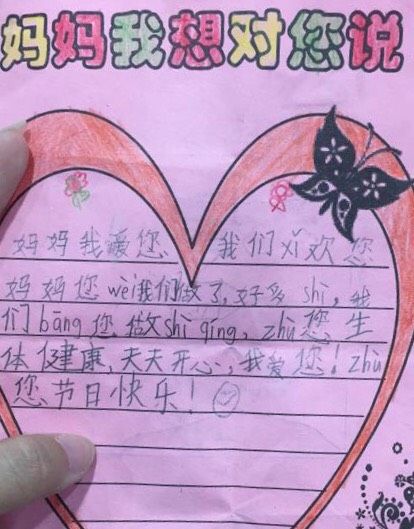 妈妈我想对您说
妈妈我爱您 我们xǐ欢您
妈妈您wèi我们做了,好多shì,我
们bāng您做shì qing,zhù您生
体健康,天天开心,我爱您!zhù
您节日快乐!